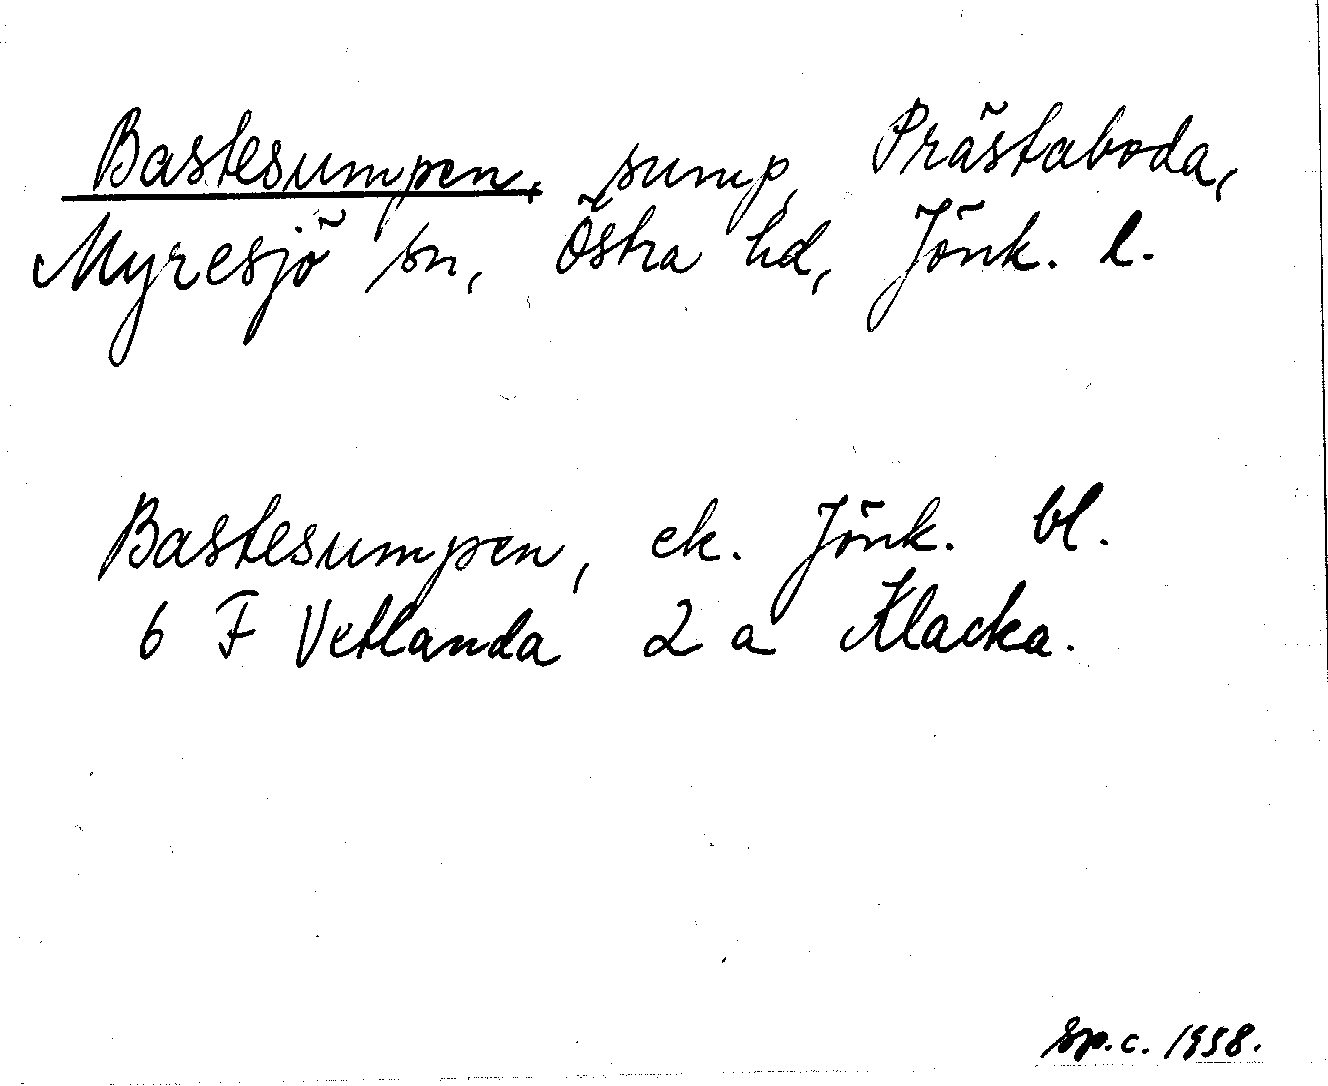 Bastesumpen, sump, Prästaboda,
Myresjö sn, Östra hd, Jönk. l.
Bastesumpen, ek. Jönk. bl.
6 F Vetlanda 2 a Klacka.
Sp.c. 1958.